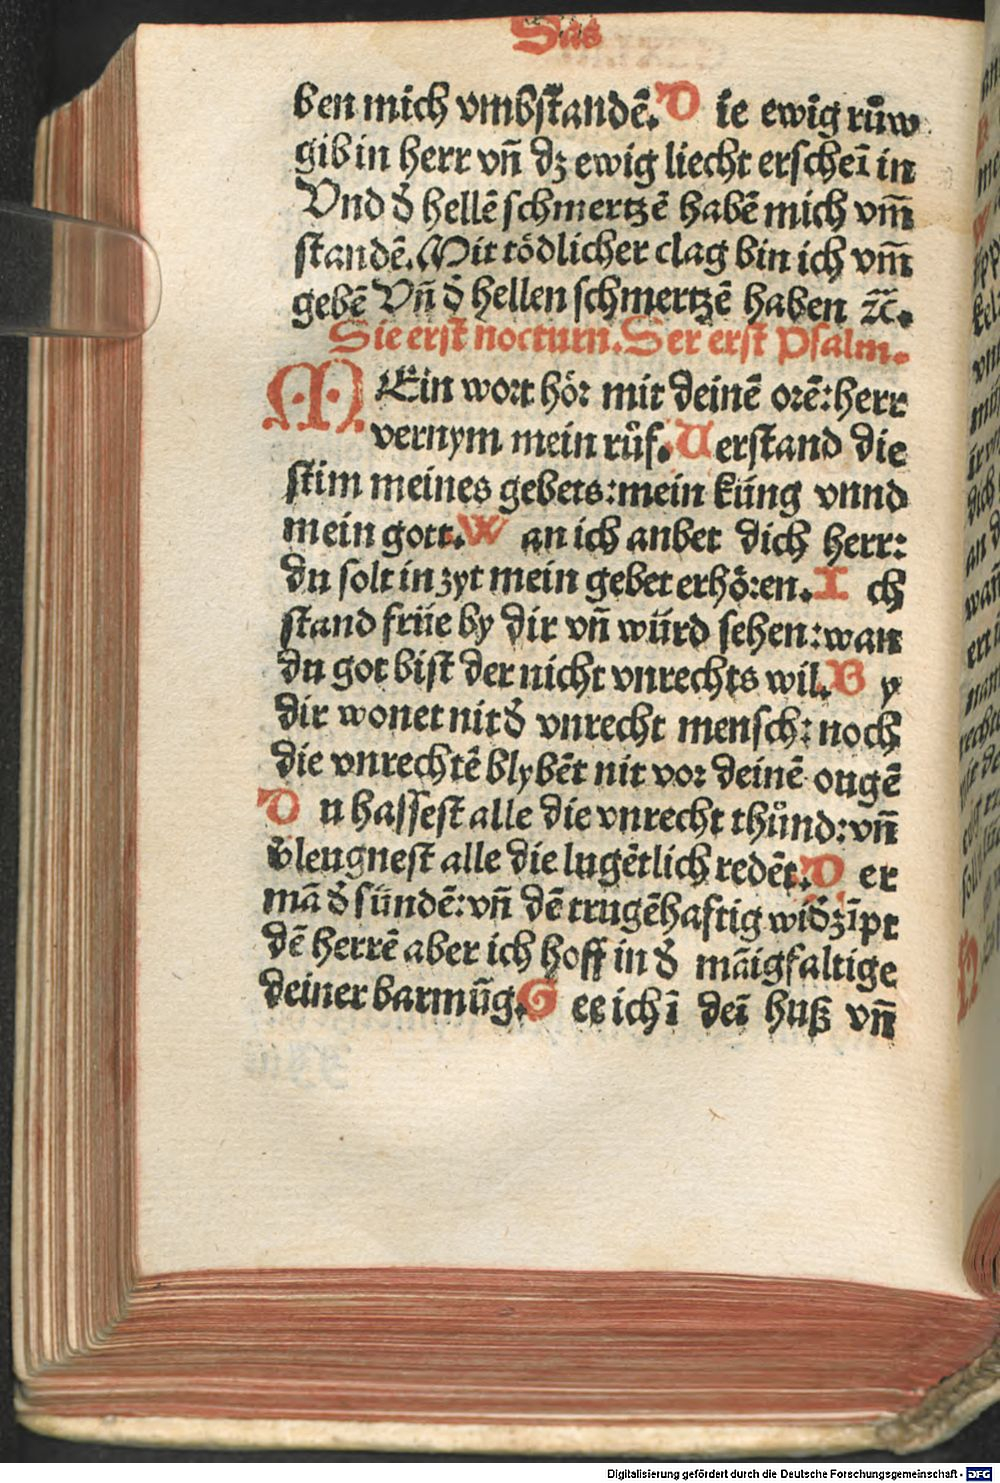 Das
ben mich vmbstandē. D ie ewig růw
gib in herr vñ dz ewig liecht erscheī in
Vnd d̄ hellē schmertzē habē mich vm̄
standē. Mit tödlicher clag bin ich vm̄
gebē Vñ d̄ hellen schmertzē haben ꝛc̄.
Die erst nocturn. Der erst Psalm.
MEin wort hör mit deinē orē: herr
vernym mein růf. Uerstand die
stim meines gebets: mein küng vnnd
mein gott. W an ich anbet dich herr:
du solt in zyt mein gebet erhören. I ch
stand früe by dir vñ würd sehen: wan
du got bist der nicht vnrechts wil. B y
dir wonet nit d̄ vnrecht mensch: noch
die vnrechtē blybēt nit vor deinē ougē
D u hassest alle die vnrecht thůnd: vñ
v̄leugnest alle die lugētlich redēt. D er
mā d̄ sündē: vñ dē trugēhaftig wid̄zīpt
dē herrē aber ich hoff in d̄ māigfaltige
deiner barmūg. G ee ich ī deī huß vñ
Digitalisierung gefördert durch die Deutsche Forschungsgemeinschaft - DFG